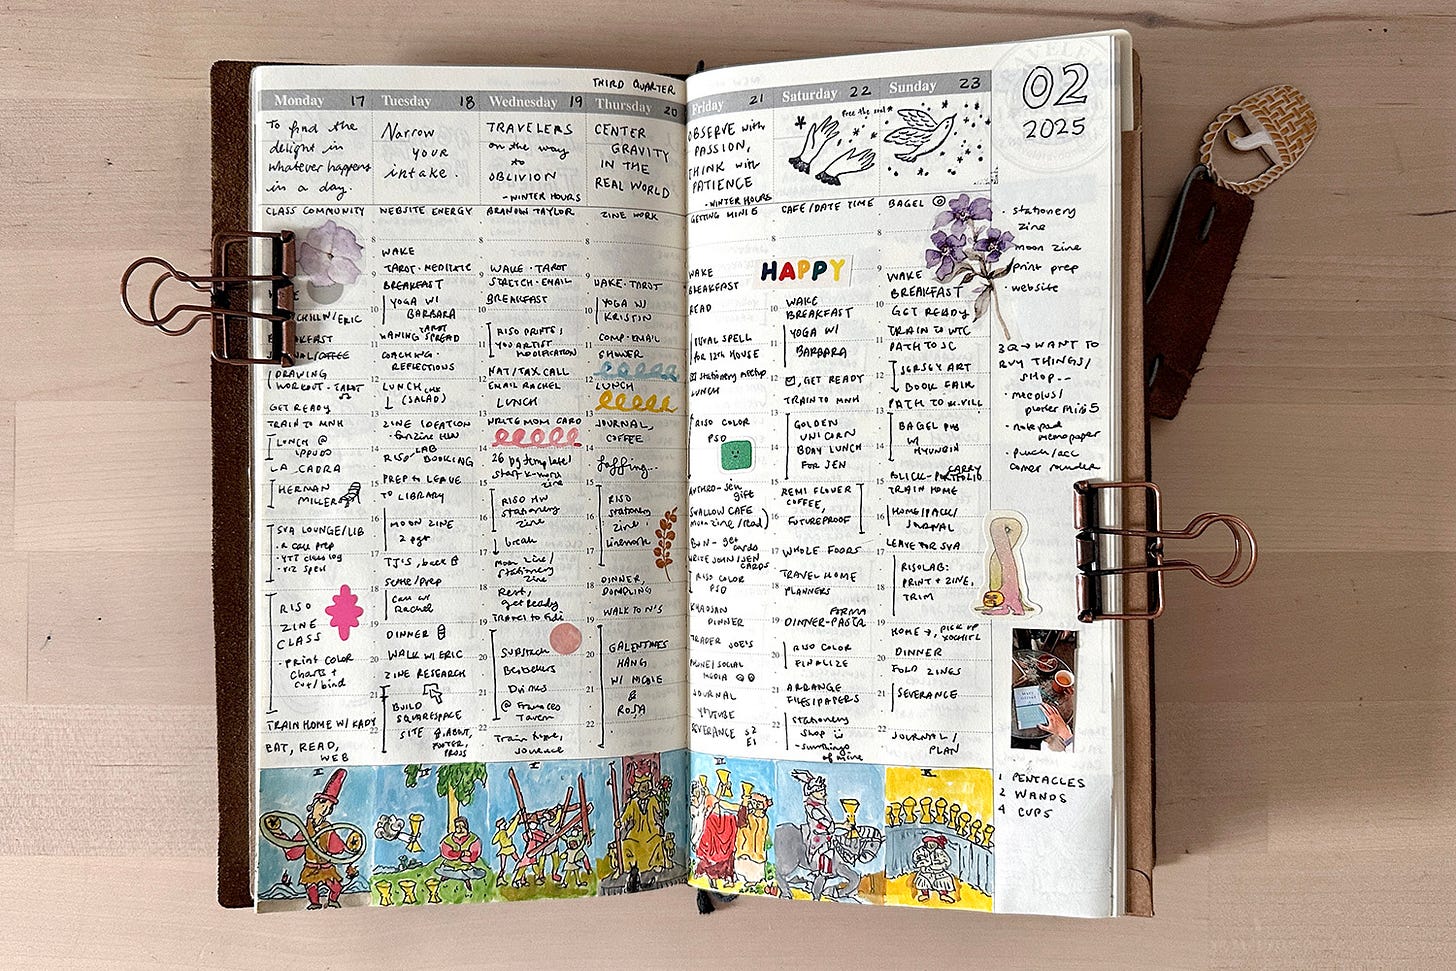 THIRD QUARTER
Monday 17
To find the
delight in
whatever happens
in a day.
CLASS COMMUNITY
8
9
10
CHILL W/ ERIC
11
BREAKFAST
JOURNAL/COFFEE
DRAWING
WORKOUT · TAROT
12
GET READY
13
TRAIN TO MNH
LUNCH @
IPPUDO
14
LA CABRA
15
HERMAN
MILLER
16
SVA LOUNGE/LIB
17
18
RISO
ZINE
CLASS
19
20
· PRINT COLOR
CHARTS +
cut/bind
21
TRAIN HOME W/ KADY
22
EAT, READ,
WEB
Tuesday 18
Narrow
YOUR
intake.
WEBSITE ENERGY
WAKE
TAROT · MEDITATE
BREAKFAST
YOGA W/
BARBARA
TAROT
WANING SPREAD
COACHING ·
REFLECTIONS
LUNCH
(SALAD)
ZINE IDEATION
· fanzine HW
RISOLAB
BOOKING
PREP to LEAVE
TO LIBRARY
MOON ZINE
2 pgs
TJ'S, back
settle/prep
Call w/
Rachel
DINNER
WALK W/ ERIC
ZINE RESEARCH
BUILD
SQUARESPACE
SITE
ABOUT,
FOOTER,
PROJS
Wednesday 19
TRAVELERS
on the way
to
OBLIVION
- WINTER HOURS
BRANDON TAYLOR
WAKE · TAROT
STRETCH · EMAIL
BREAKFAST
RISO PRINTS;
YOU ARTIST
MODIFICATION
NAT/TAX CALL
EMAIL RACHEL
LUNCH
WRITE MOM CARD
26 pg template/
start K-mom
zine
RISO HW
stationery
zine
break
moon zine/
stationery
zine
Rest,
get Ready
TRAVEL to FiDi
SUBSTACK
Bestsellers
Drinks
@ Fraunces
Tavern
Train home,
journal
Thursday 20
CENTER
GRAVITY
IN THE
REAL WORLD
ZINE WORK
WAKE · TAROT
YOGA W/
KRISTIN
COMP · EMAIL
SHOWER
LUNCH
JOURNAL,
COFFEE
faffing..
RISO
stationery
zine:
linework
DINNER,
DUMPLING
WALK TO N'S
GALENTINES
HANG
W/ NICOLE
&
ROSA
Friday 21
OBSERVE with
PASSION,
THINK with
PATIENCE
- WINTER HOURS
GETTING MINI 5
WAKE
BREAKFAST
READ
RITUAL SPELL
for 12th HOUSE
stationery meetup
LUNCH
RISO COLOR
PSD
ANTHRO - Jen
gift
SWALLOW CAFE
moon zine/read
BGN - get
cards
WRITE JOHN/JEN
CARDS
RISO COLOR
PSD
KHAOSAN
DINNER
TRADER JOE'S
MUNEI/SOCIAL
MEDIA
JOURNAL
YOUTUBE
SEVERANCE S2
E1
Saturday 22
Free the soul
CAFE/DATE TIME
HAPPY
WAKE
BREAKFAST
YOGA W/
BARBARA
GET READY
TRAIN TO MNH
GOLDEN
UNICORN
BDAY LUNCH
FOR JEN
REMI FLOWER
COFFEE,
FUTUREPROOF
WHOLE FOODS
TRAVEL HOME
PLANNERS
FORMA
DINNER - PASTA
RISO COLOR
FINALIZE
ARRANGE
FILES/PAPERS
Stationery
Shop
- sumthings
of mine
Sunday 23
BAGEL
WAKE
BREAKFAST
GET READY
TRAIN TO WTC
PATH TO JC
JERSEY ART
BOOK FAIR
PATH TO W. VILL
BAGEL PUB
W/
HYUNBIN
CARRY
BLICK - PORTFOLIO
TRAIN HOME
HOME/PACK/
JOURNAL
LEAVE FOR SVA
RISOLAB:
PRINT + ZINE,
TRIM
HOME →, PICK UP
XOCHITL
DINNER
FOLD ZINES
SEVERANCE
JOURNAL/
PLAN
02
2025
· stationery
zine
· moon zine
· print prep
· website
3Q → WANT TO
BUY THINGS/
SHOP...
· medium/
plotter mini 5
· notepad
memo paper
· punch/acc
corner rounder
1 PENTACLES
2 WANDS
4 CUPS